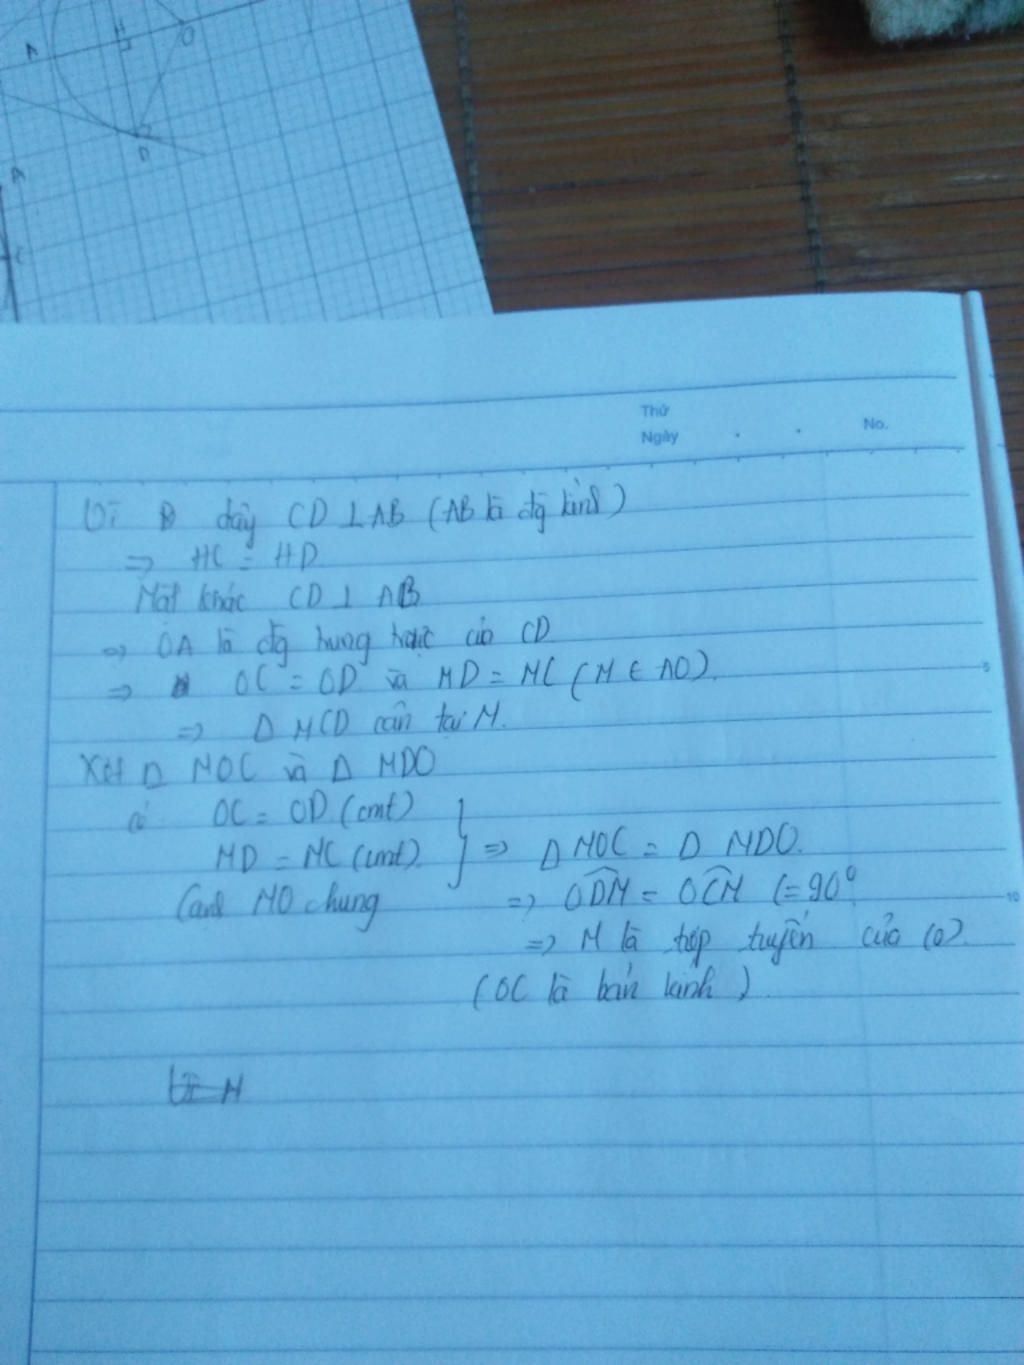 A
H
O
D
A
C
Thứ
Ngày . . No.
Vì dây CD ⊥ AB (AB là đg kính)
=> HC = HD
Mặt khác CD ⊥ AB
=> OA là đg trung trực của CD
=> OC = OD và MD = MC (M ∈ AO).
=> Δ MCD cân tại M.
Xét Δ MOC và Δ MDO
có OC = OD (cmt)
MD = MC (cmt). } => Δ MOC = Δ MDO.
Cạnh MO chung => ODM = OCM (= 90°
=> M là tiếp tuyến của (O).
(OC là bán kính).
Vì M
5
10